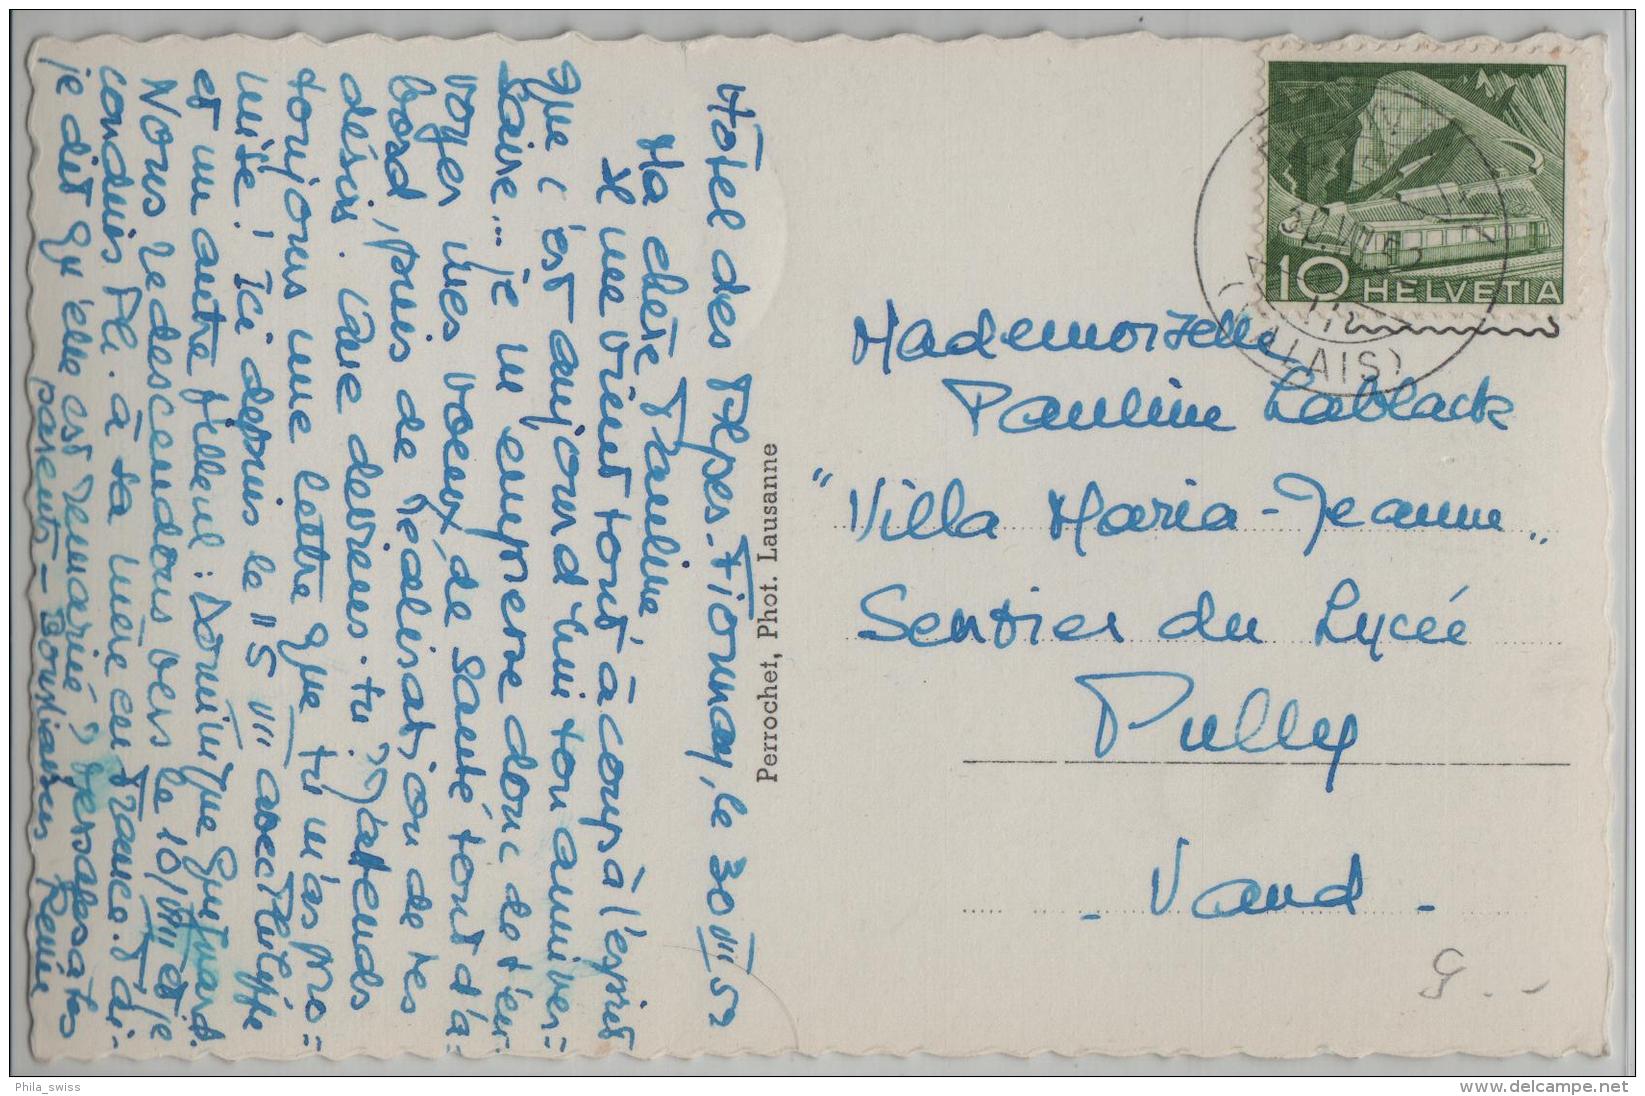 Hôtel des Alpes. Fionnay, le 30 VII 52
Ma chère Pauline
Il me vient tout à coup à l'esprit
que c'est aujourd'hui ton anniver=
saire... je m'empresse donc de t'en=
voyer mes voeux, de santé tout d'a=
bord, puis de réalisation de tes
désirs.
toujours une lettre que tu m'as pro=
mise! Ici depuis le 15 VII avec Philippe
et un autre filleul: Dominique
Nous redescendons vers le 10/VIII et je
conduis Ph. à sa mère en France. T'ai-
je dit qu'elle est remariée?
Renée
Perrochet, Phot. Lausanne
HELVETIA
10
(VALAIS)
Mademoiselle
Pauline Lablack
"Villa Maria-Jeanne"
Sentier du Lycée
Pully
- Vaud -
Phila_swiss
https://www.delcampe.net